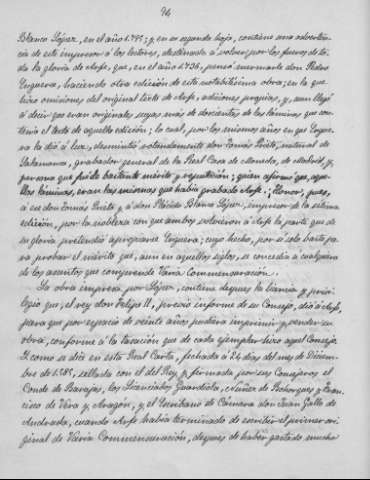 94
Blanco López, en el año 1.795; y, en su segunda hoja, contiene una adverten-
cia de este impresor á los lectores, destinada á volver por los fueros de to-
da la gloria de Arfe, que, en el año 1.736, pensó mermarle don Pedro
Enguera, haciendo otra edición de esta notabilísima obra; en la que
hizo omisiones del original texto de Arfe, adiciones propias, y, aun llegó
á decir que eran originales suyas más de doscientas de las láminas que con-
tenía el texto de aquella edición; lo cual, por los mismos años en que Engue-
ra la dió á luz, desmintió rotundamente don Tomás Prieto, natural de
Salamanca, grabador general de la Real Casa de Moneda, de Madrid, y,
persona que fué de bastante mérito y reputación; quien afirmó que, aque-
llas láminas, eran las mismas que había grabado Arfe. ¡Honor, pues,
á ese don Tomás Prieto y á don Plácido Blanco López, impresor de la sétima
edición, por la nobleza con que ambos volvieron á Arfe la parte que de
su gloria pretendió apropiarse Enguera; cuyo hecho, por sí solo basta pa-
ra probar el mérito que, aun en aquellos siglos, se concedía á cualquiera
de los asuntos que comprende Varia Commensuración.
La obra impresa por López, contiene después la licencia y privi-
legio que, el rey don Felipe II, previo informe de su Consejo, dió á Arfe,
para que por espacio de veinte años pudiera imprimir y vender su
obra, conforme á la tasación que de cada ejemplar hizo aquel Consejo.
Y como se dió en esta Real Carta, fechada á 24 días del mes de Diciem-
bre de 1.585, sellada con el del Rey y firmada por sus Consejeros el
Conde de Barajas, los Licenciados Guardiola, Núñez de Bohorques y Fran-
cisco de Vera y Aragón, y el Escribano de Cámara don Juan Gallo de
Andrada, cuando Arfe había terminado de escribir el primer ori-
ginal de Varia Commensuración, después de haber gastado mucho